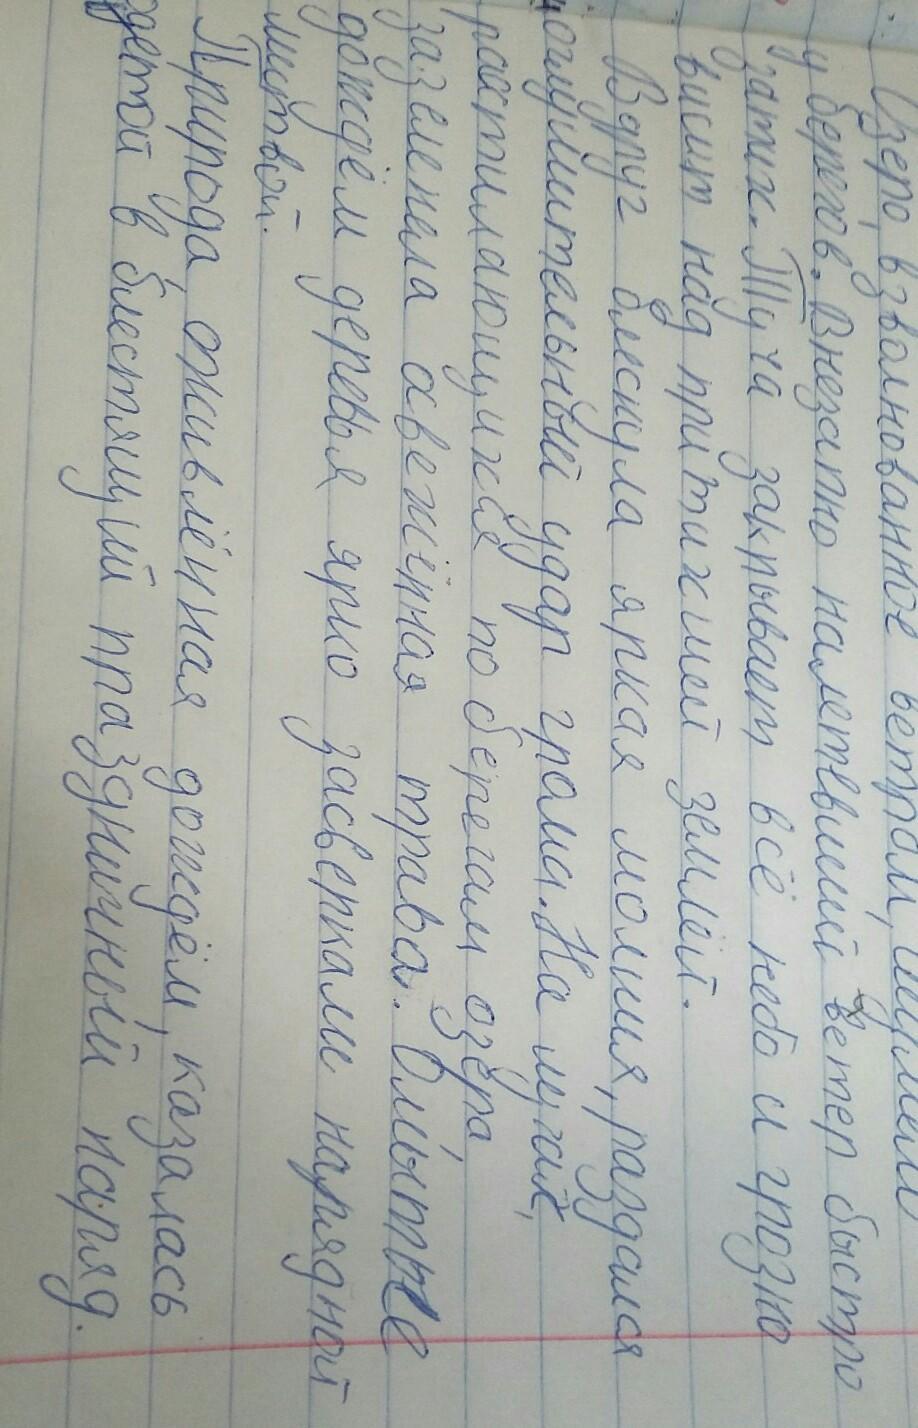 Озеро, взволнованное ветром, шумело
у берегов. Внезапно налетвший ветер быстро
затих. Туча закрывает всё небо и грозно
висит над притихшей землёй.
Вдруг блиснула яркая молния, раздался
оглушительный удар грома. На лугах,
растилающихся по берегам озёра,
зазеленела освежённая трава. Омытые
дождём деревья ярко засверкали нарядной
листвой.
Природа, оживлённая дождём, казалась
одетой в блестящий праздничный наряд.